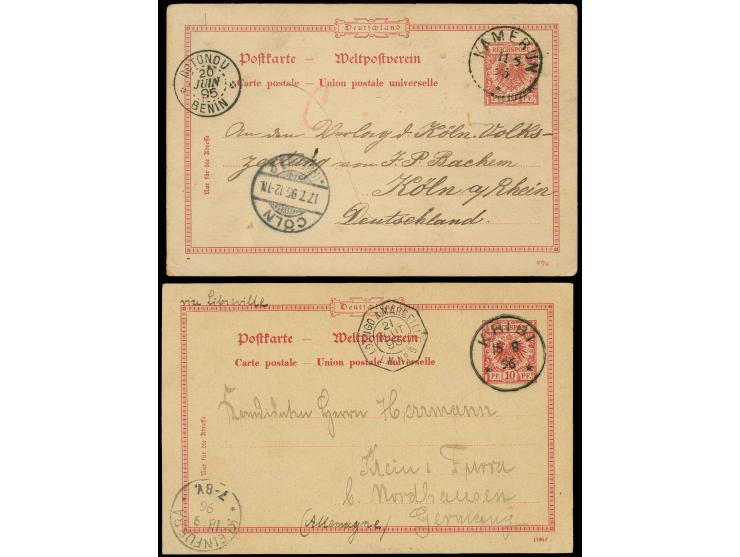 Deutschland
Postkarte – Weltpostverein
Carte postale – Union postale universelle
KAMERUN
REICHSPOST
COTONOU
20
JUIN
95
BENIN
Nur für die Adresse
An den Verlag d. Köln. Volks-
zeitung von J. P. Bachem
Köln a/Rhein
Deutschland.
CÖLN
17.7.95.12-1N.
Deutschland
via Libreville
Postkarte – Weltpostverein
Carte postale – Union postale universelle
LOANGO A MARSEILLE
21
96
KRIBI
15 8
96
10 PF.
Nur für die Adresse
Kandidaten Herrn Herrmann
Klein Furra
b. Nordhausen
(Allemagne) Germany
KLEINFURRA
18 9
96
7-8V.